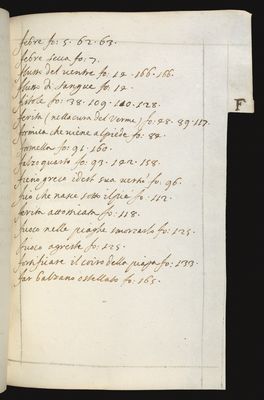 febre fo: 5. 62. 63.
febre secca fo: 7.
flusso del ventre fo: 12. 166. 166.
flusso di sangue fo: 12.
fistole fo: 38. 109. 120. 128.
ferita (nella cura del Verme) fo: 28. 39. 117.
formica che viene al piede fo: 82.
formella fo: 91. 160.
falzo quarto fo: 93. 122. 158.
fieno greco idest sua vertù fo: 96.
fico che nasce sotto il piè fo: 112.
ferita attossicata fo: 118.
fuoco nelle piaghe smorzarlo fo: 125.
fuoco agreste fo: 125.
fortificare il coiro della piaga fo: 133.
far balzano fo: 165.
F